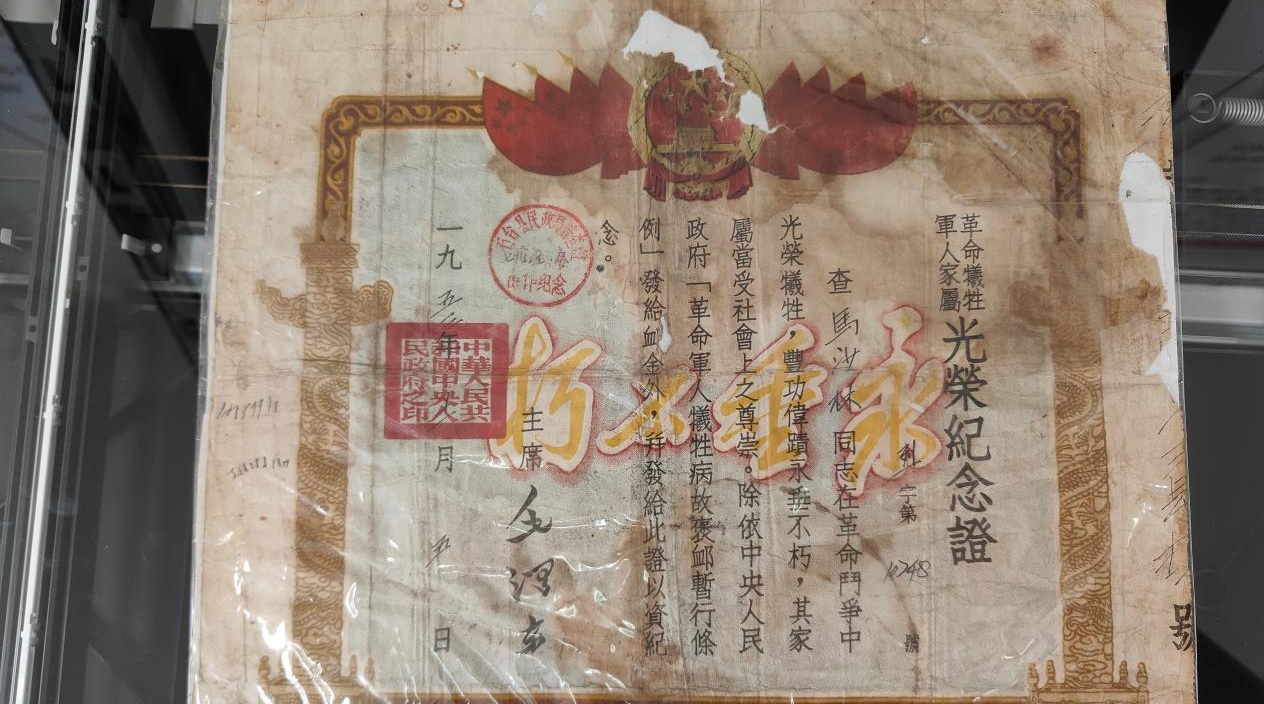 革命犧牲
軍人家屬
光榮紀念證
字第 號
查馬汝林同志在革命鬥爭中
光榮犧牲，豐功偉蹟永垂不朽，其家
屬當受社會上之尊崇。除依中央人民
政府「革命軍人犧牲病故褒䘏暫行條
例」發給䘏金外，幷發給此證以資紀
念。
永垂不朽
主席 毛澤東
一九五 年八月五日
中華人民共
和國中央人
民政府之印
號